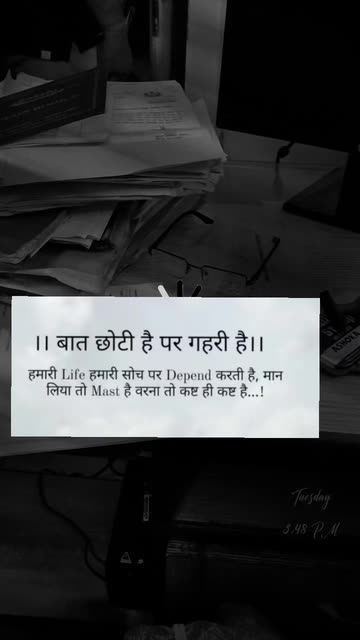 ।। बात छोटी है पर गहरी है।।
हमारी Life हमारी सोच पर Depend करती है, मान
लिया तो Mast है वरना तो कष्ट ही कष्ट है...!
Tuesday
3.48 P.M